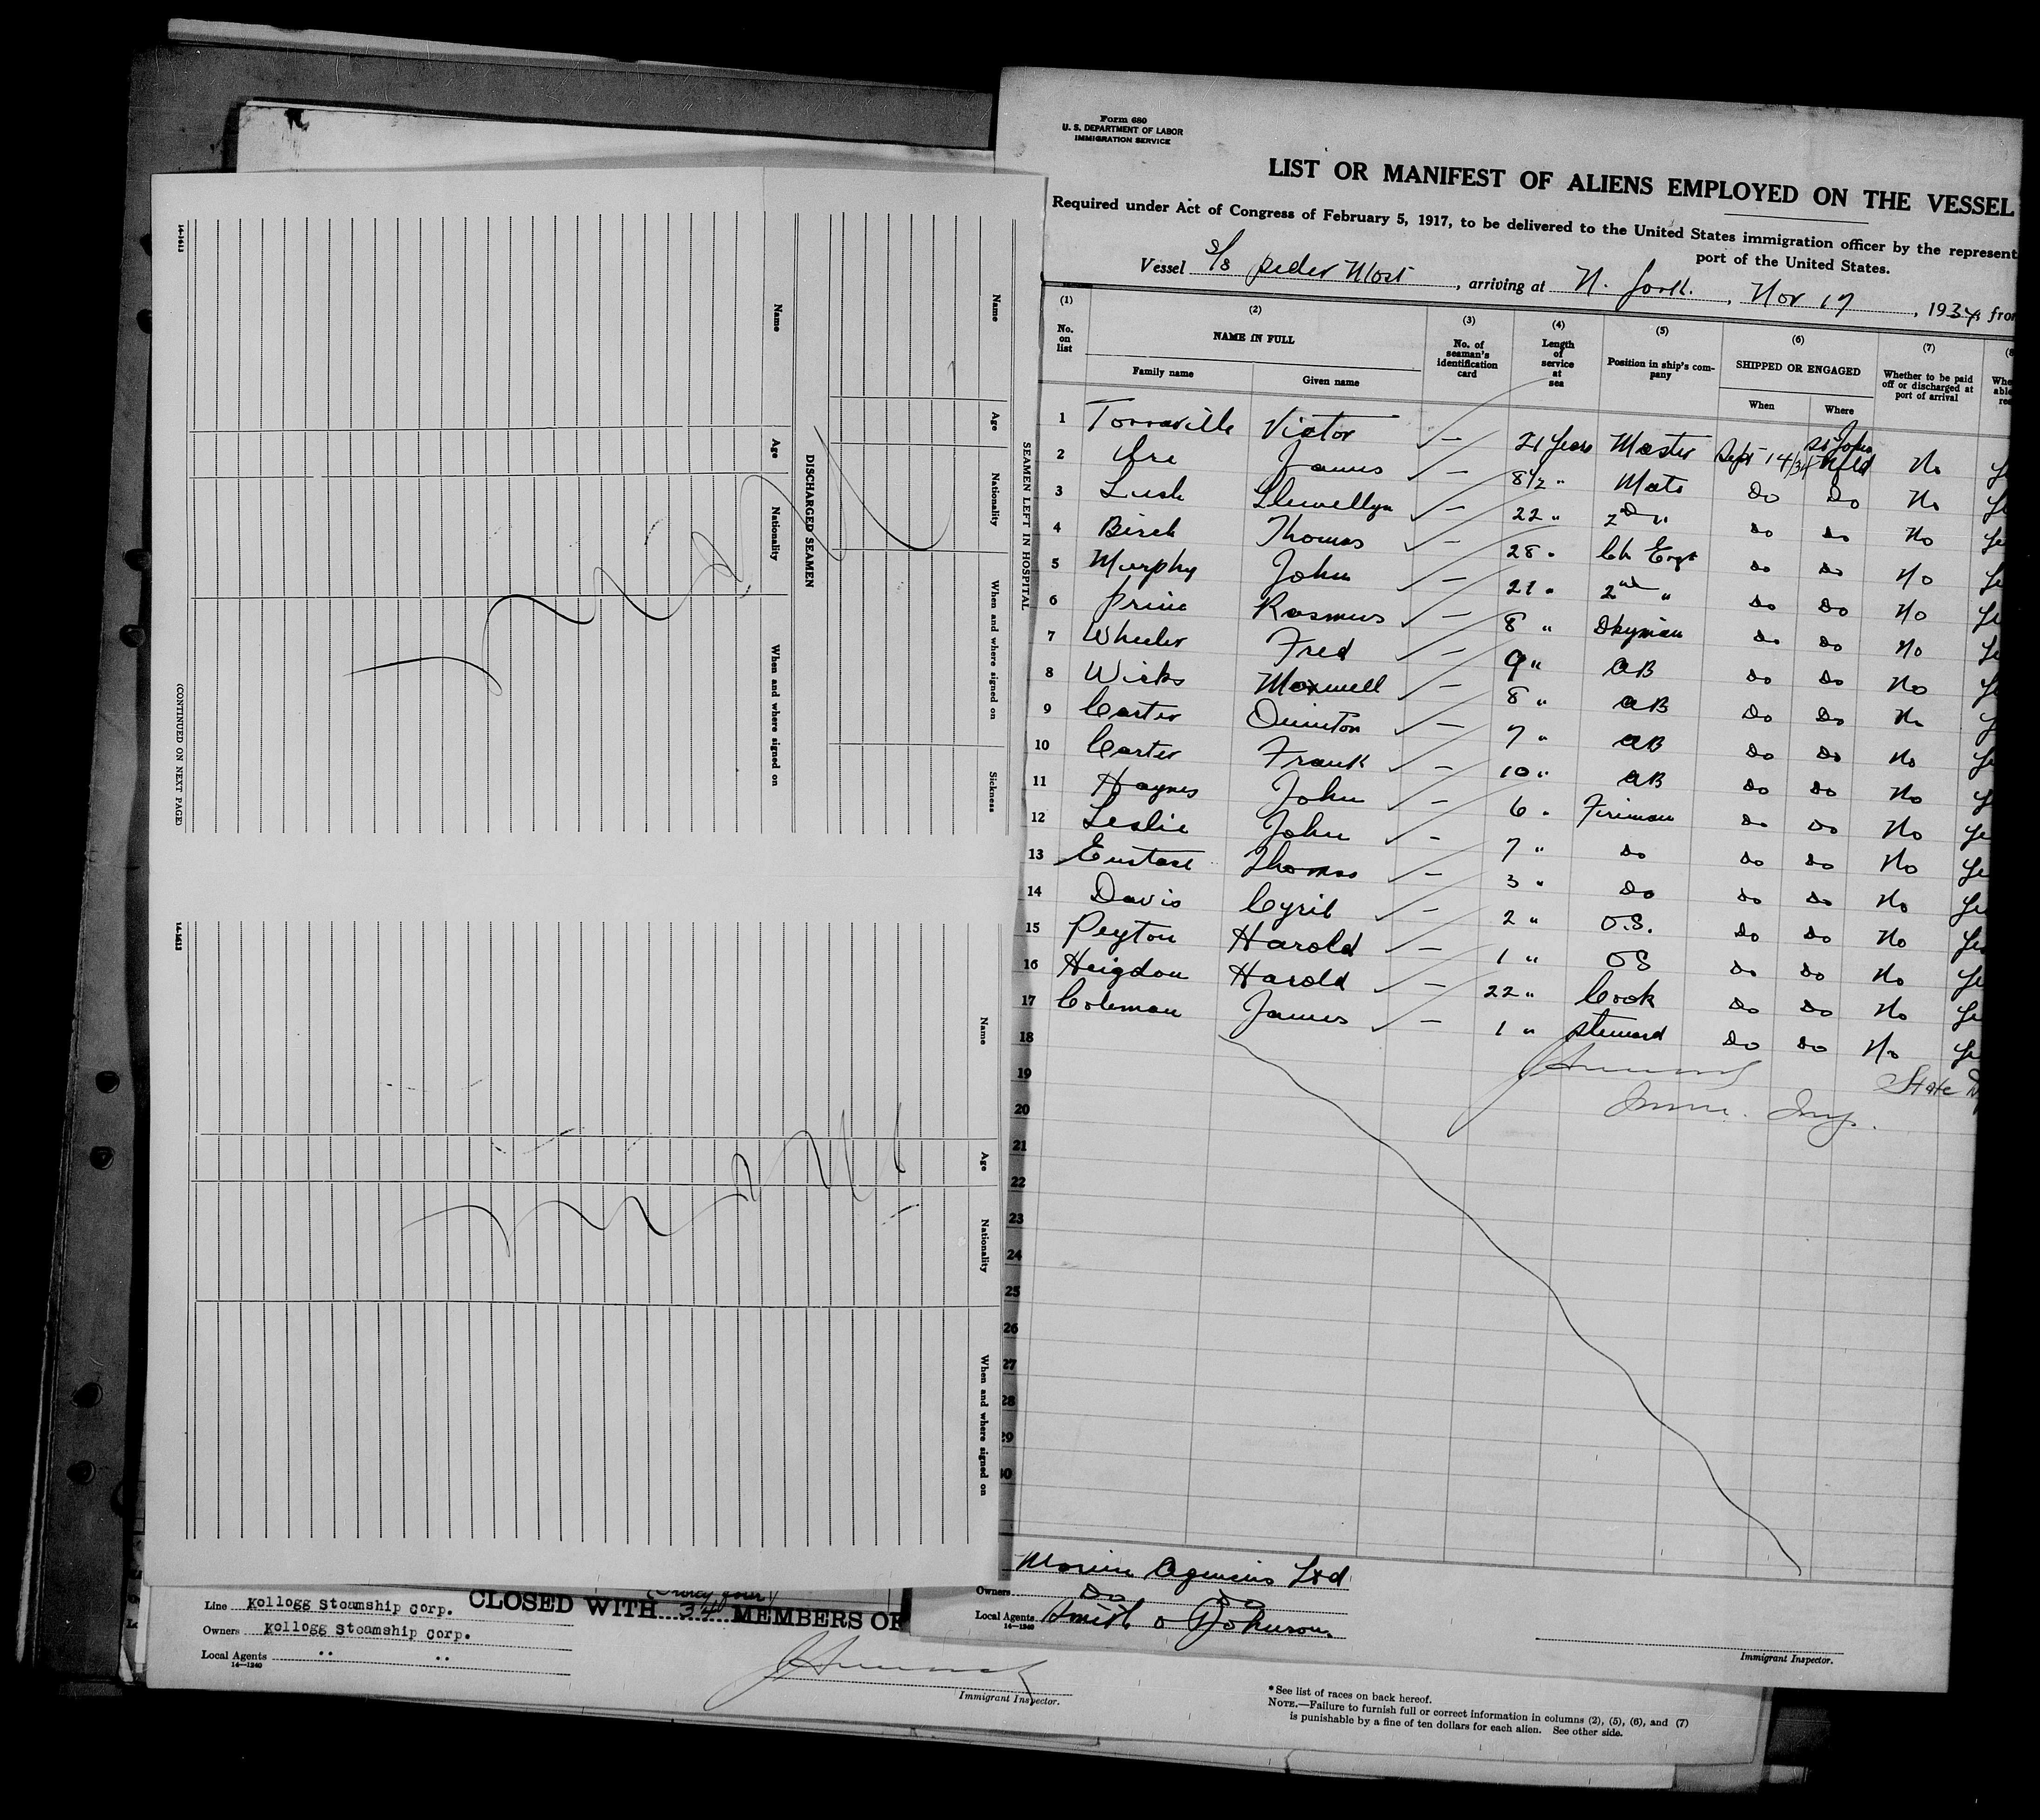 14-1613
Name
Age
Nationality
When and where signed on
(CONTINUED ON NEXT PAGE)
DISCHARGED SEAMEN
Name
Age
Nationality
When and where signed on
Sickness
SEAMEN LEFT IN HOSPITAL
14-1613
Name
Age
Nationality
When and where signed on
Line Kollogg Steamship Corp.
Owners Kollogg Steamship Corp.
Local Agents " "
14—1240
CLOSED WITH 34 MEMBERS OF
Immigrant Inspector.
* See list of races on back hereof.
NOTE.—Failure to furnish full or correct information in columns (2), (5), (6), and (7)
is punishable by a fine of ten dollars for each alien. See other side.
Form 680
U. S. DEPARTMENT OF LABOR
IMMIGRATION SERVICE
LIST OR MANIFEST OF ALIENS EMPLOYED ON THE VESSEL
Required under Act of Congress of February 5, 1917, to be delivered to the United States immigration officer by the represent
port of the United States.
Vessel S/S , arriving at N. York. , Nov 17 , 1934 from
(1) (2) (3) (4) (5) (6) (7) (8
No. on list
NAME IN FULL
Family name Given name
No. of seaman's identification card
Length of service at sea
Position in ship's company
SHIPPED OR ENGAGED
When Where
Whether to be paid off or discharged at port of arrival
1 Torraville Victor — 21 years Master Sept 14/34 St Johns Nfld No
2 James — 8 1/2 " Mate Do Do No
3 Lush Llewellyn — 22 " 2nd " Do Do No
4 Birch Thomas — 28 " Ch Engr Do Do No
5 Murphy John — 21 " 2nd " Do Do No
6 Rasmus — 8 " Dkyman Do Do No
7 Wheeler Fred — 9 " AB Do Do No
8 Wicks Maxwell — 8 " AB Do Do No
9 Carter Quinton — 7 " AB Do Do No
10 Carter Frank — 10 " AB Do Do No
11 Haynes John — 6 " Fireman Do Do No
12 Leslie John — 7 " Do Do Do No
13 Eustace Thomas — 3 " Do Do Do No
14 Davis Cyril — 2 " O.S. Do Do No
15 Peyton Harold — 1 " OS Do Do No
16 Heigdon Harold — 22 " Cook Do Do No
17 Coleman James — 1 " Steward Do Do No
18
19 State
20 Imm. Insp.
21
22
23
24
25
26
27
28
29
30
Marine Agencies Ltd
Owners Do Do
Local Agents Smith & Johnson
14—1240
Immigrant Inspector.